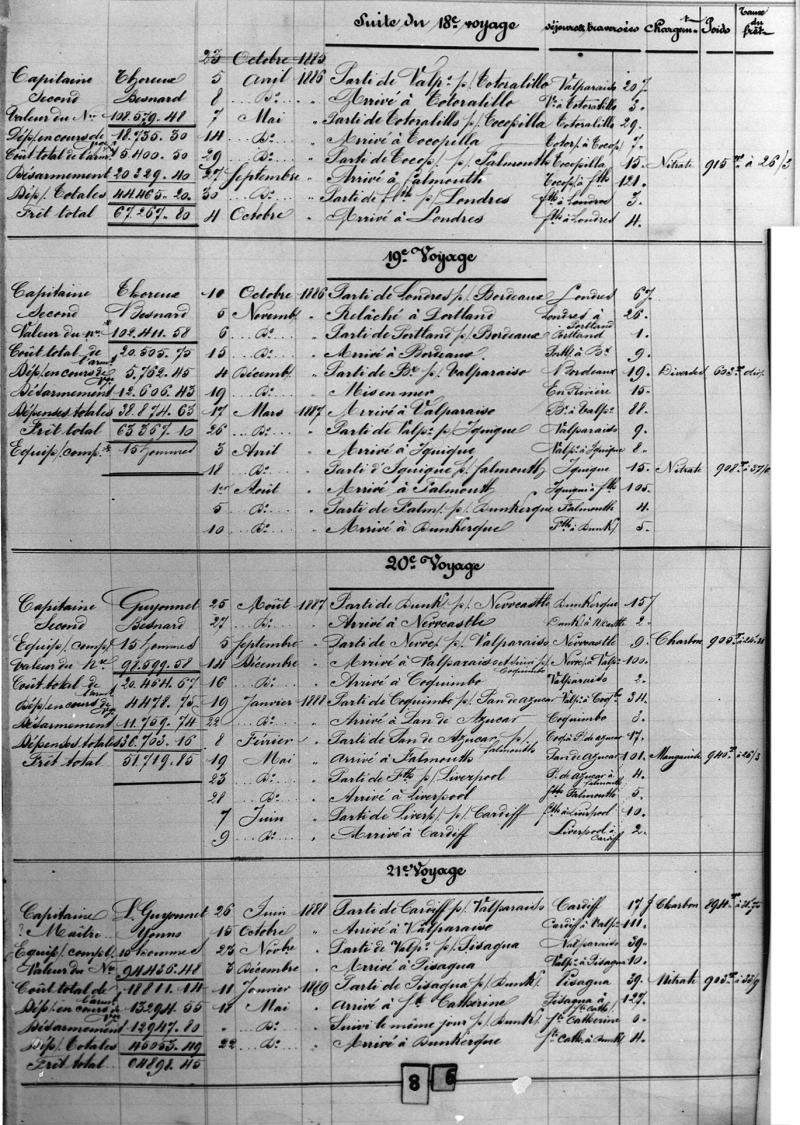 Suite du 18e voyage Séjours & traversées Chargemt Poids Taux du frêt
23 Octobre 1885
Capitaine Thoreux 5 Avril 1886 Parti de Valpo p/ Totoralillo Valparaiso 207
Second Besnard 8 Do " Arrivé à Totoralillo Vo à Totoralillo 3.
Valeur du Nre 108.579.48 7 Mai " Parti de Totoralillo p/ Tocopilla Totoralillo 29.
Dép/ en cours de 18.735.30 14 Do " Arrivé à Tocopilla 7.
Coût total de l'armt 5.400.50 29 Do " Parti de Tocop/ p/ Falmouth Tocopilla 15. Nitrate 915 à 26/3
Désarmement 20.329.40 27 Septembre " Arrivé à Falmouth Tocop/ à Fth 121.
Dép/ Totales 44.465.20 30 Do " Parti de Fth p/ Londres Fth à Londres 3.
Frêt total 67.267.80 4 Octobre " Arrivé à Londres Fth à Londres 4.
19e Voyage
Capitaine Thoreux 10 Octobre 1886 Parti de Londres p/ Bordeaux Londres 67
Second Besnard 5 Novemb/ " Relâché à Portland Londres à Portland 26.
Valeur du nre 102.411.58 6 Do " Parti de Portland p/ Bordeaux Portland 1.
Coût total de l'armt 20.505.75 15 Do " Arrivé à Bordeaux à Bx 9.
Dép/ en cours de vge 5.762.45 4 Décemb/ " Parti de Bx p/ Valparaiso Bordeaux 19. Diverses
Désarmement 12.606.43 19 Do " Mis en mer En Rivière 15.
Dépenses totales 38.874.63 17 Mars 1887 Arrivé à Valparaiso Bx à Valpo 88.
Frêt total 63.367.10 26 Do " Parti de Valpo p/ Iquique Valparaiso 9.
Equip/ compt 15 hommes 3 Avril " Arrivé à Iquique Valpo à Iquique 8.
18 Do " Parti d'Iquique p/ Falmouth Iquique 15. Nitrate 908
1er Août " Arrivé à Falmouth Iquique à Fth 105.
5 Do " Parti de Falm/ p/ Dunkerque Falmouth 4.
10 Do " Arrivé à Dunkerque Fth à Dunk/ 5.
20e Voyage
Capitaine Guyonnet 25 Août 1887 Parti de Dunk/ p/ Newcastle Dunkerque 15
Second Besnard 27 Do " Arrivé à Newcastle 2.
Equip/ compt 15 hommes 5 Septembre " Parti de Newc/ p/ Valparaiso Newcastle 9. Charbon 905
Valeur du Nre 98.599.58 14 Décembre " Arrivé à Valparaiso et suivi p/ Coquimbo Newc/ à Valpo 100.
Coût total de l'armt 20.464.67 16 Do " Arrivé à Coquimbo Valparaiso 2.
Dép/ en cours de vge 4.478.75 19 Janvier 1888 Parti de Coquimbo p/ Pan de azucar 34.
Désarmement 11.759.74 22 Do " Arrivé à Pan de Azucar Coquimbo 3.
Dépenses totales 36.703.16 8 Février " Parti de Pan de Azucar p/ Falmouth Coq/ à P. de azucar 17.
Frêt total 51.719.85 19 Mai " arrivé à Falmouth Pan de azucar 101. Manganèse 940
23 Do " Parti de Fth p/ Liverpool P. de azucar à Falmouth 4.
28 Do " Arrivé à Liverpool Falmouth 5.
7 Juin " Parti de Liverp/ p/ Cardiff Fth à Liverpool 10.
9 Do " Arrivé à Cardiff Liverpool à Cardiff 2.
21e Voyage
Capitaine L. Guyonnet 26 Juin 1888 Parti de Cardiff p/ Valparaiso Cardiff 17 Charbon 894
? Maître Yours 15 Octobre " Arrivé à Valparaiso Cardiff à Valpo 111.
Equip/ compt 15 hommes 23 Novbre " Parti de Valpo p/ Pisagua Valparaiso 39.
Valeur du Nre 94.436.48 3 Décembre " Arrivé à Pisagua Valpo à Pisagua 10.
Coût total de l'armt 18811.14 11 Janvier 1889 Parti de Pisagua p/ Dunk/ Pisagua 39. Nitrate 903
Dép/ en cours de vge 13294.55 18 Mai " Arrivé à Ste Catherine Pisagua à Ste Cath/ 127.
Désarmement 12947.80 " Do " Suivi le même jour p/ Dunk/ Ste Catherine 0.
Dép/ Totales 45053.49 22 Do " Arrivé à Dunkerque Ste Cath. à Dunk/ 4.
Frêt total 64898.45
8 6